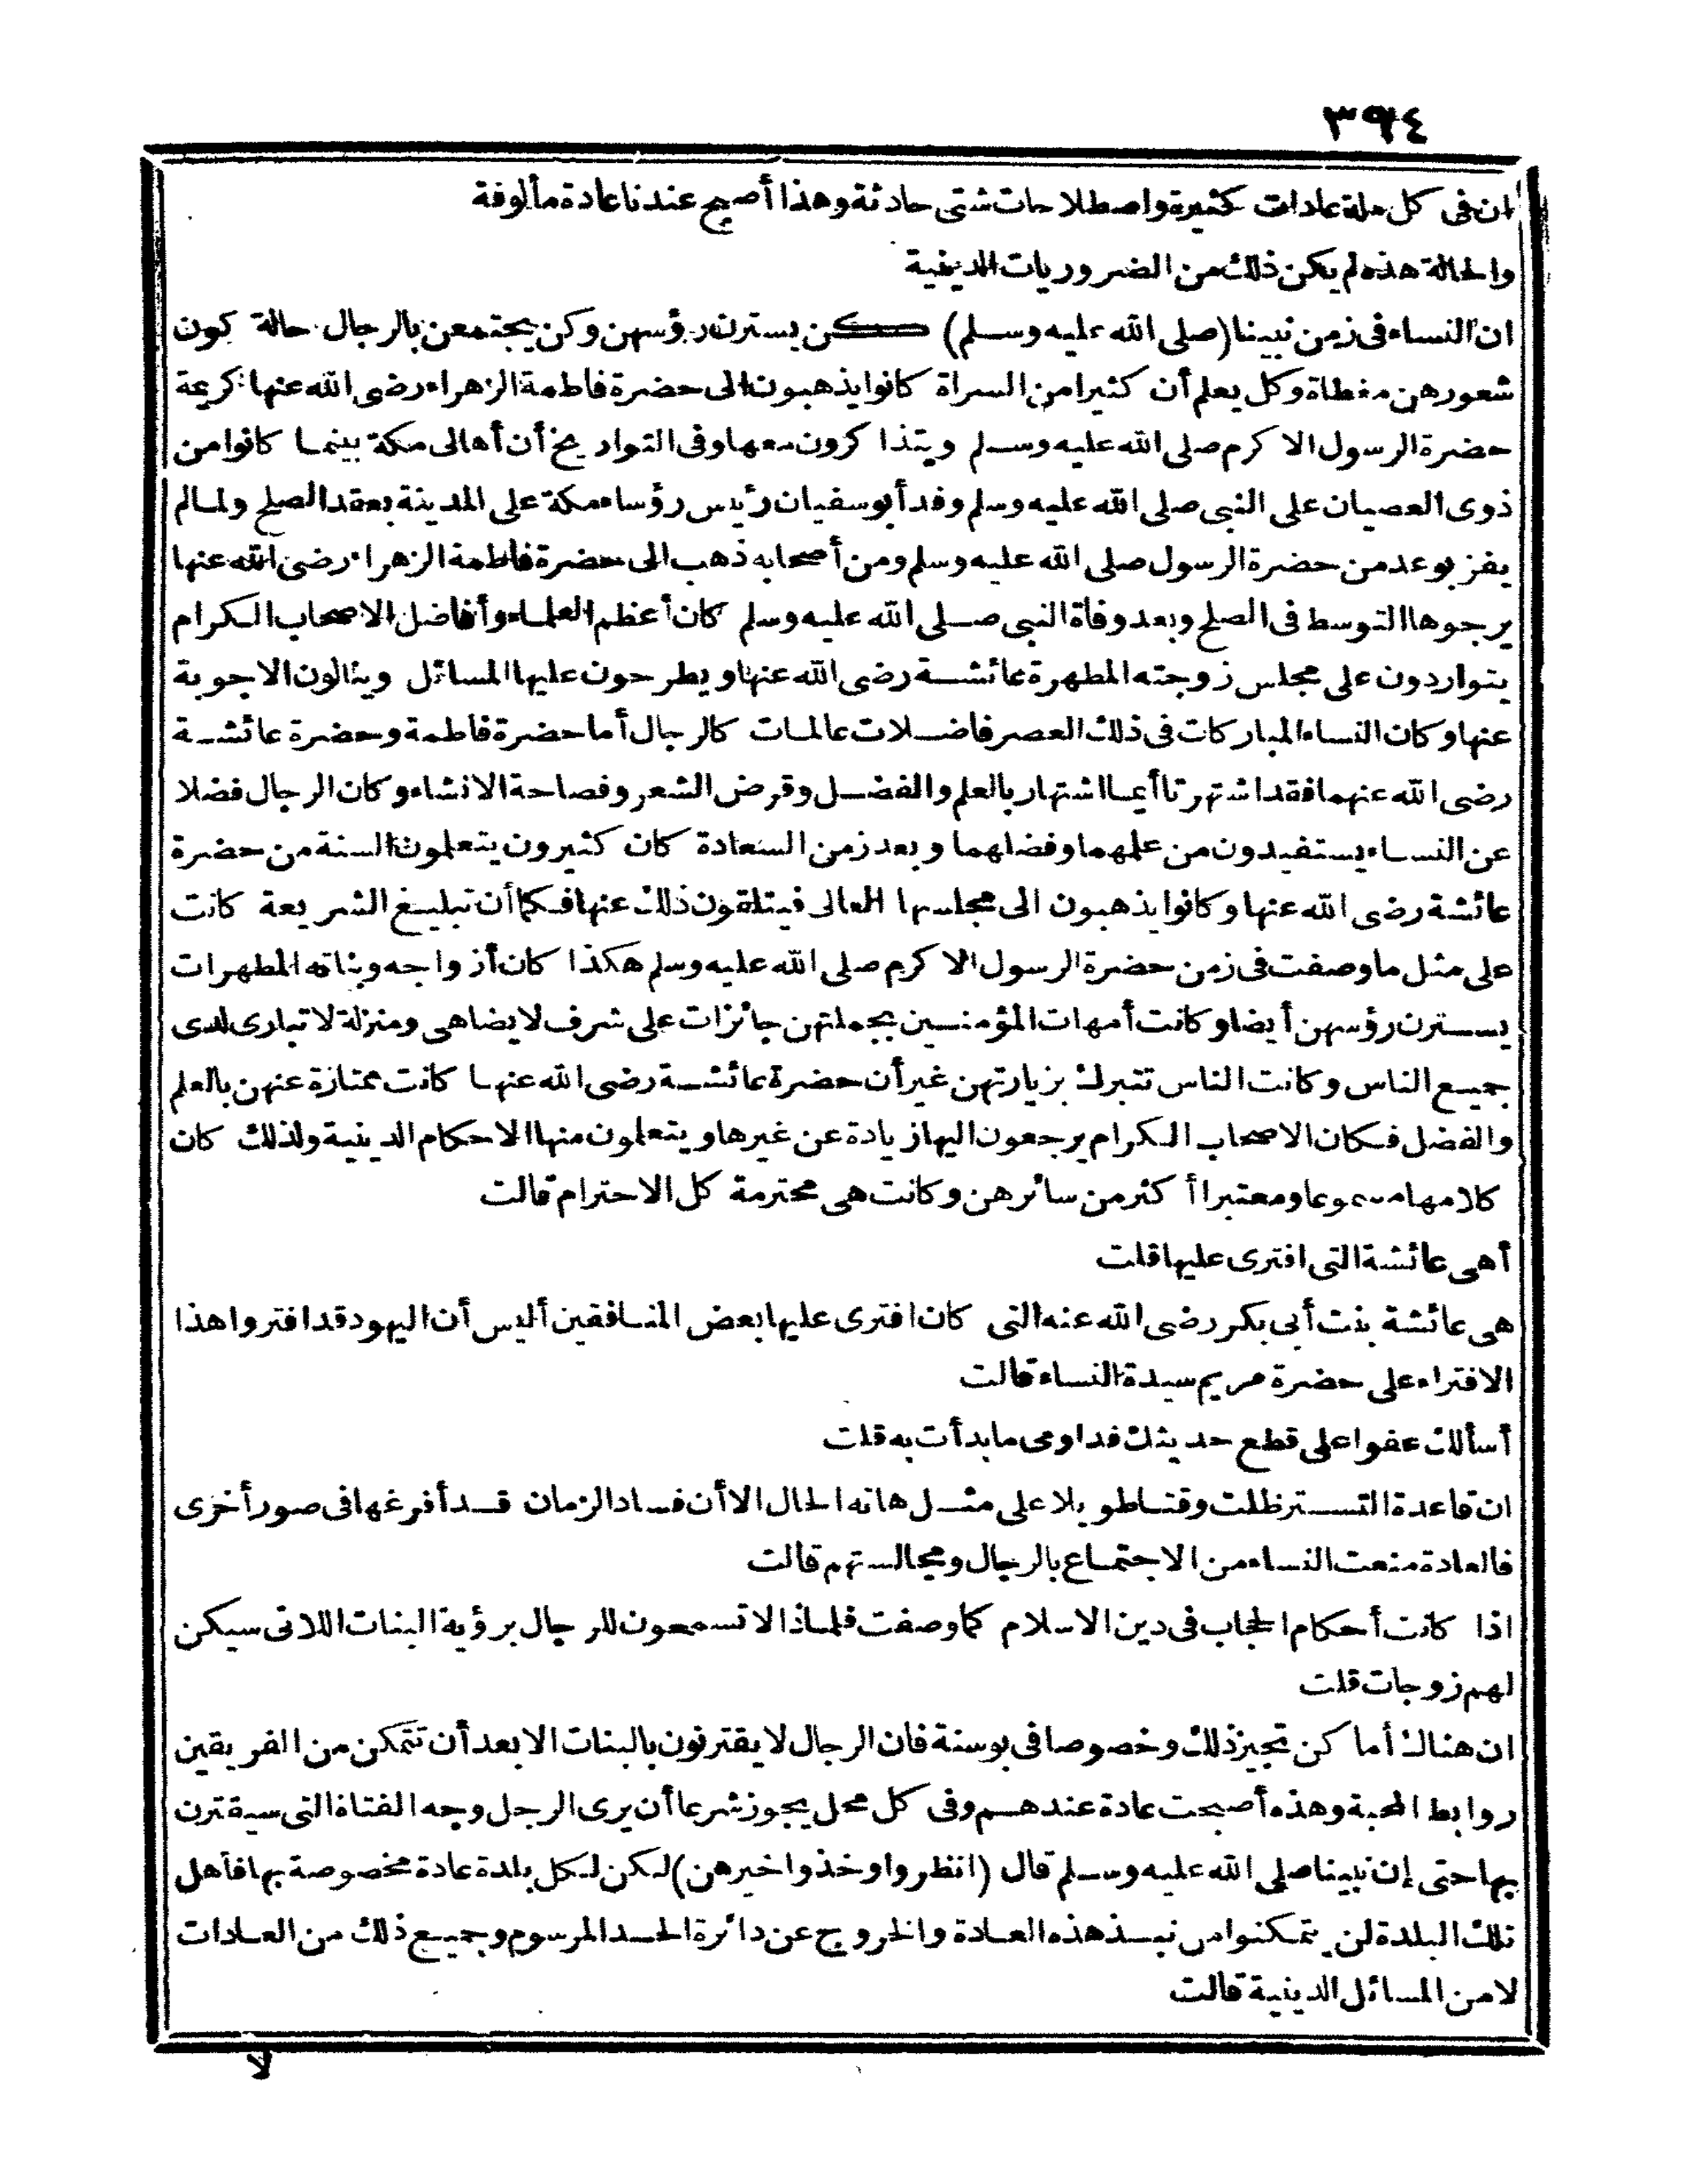 ٣٩٤
ان فى كل ملة عادات كثيرة واصطلاحات شتى حادثة وهذا أصبح عندنا عادة مألوفة
والحالة هذه لم يكن ذلك من الضروريات الدينية
ان النساء فى زمن نبينا (صلى الله عليه وسلم) كن يسترن رؤسهن وكن يجتمعن بالرجال حالة كون
شعورهن مغطاة وكل يعلم أن كثيرا من السراة كانوا يذهبون الى حضرة فاطمة الزهراء رضى الله عنها كريمة
حضرة الرسول الاكرم صلى الله عليه وسلم ويتذاكرون معها وفى التواريخ أن أهالى مكة بينما كانوا من
ذوى العصيان على النبى صلى الله عليه وسلم وفد أبوسفيان رئيس رؤساء مكة على المدينة بعقد الصلح ولما لم
يفز بوعد من حضرة الرسول صلى الله عليه وسلم ومن أصحابه ذهب الى حضرة فاطمة الزهراء رضى الله عنها
يرجوها التوسط فى الصلح وبعد وفاة النبى صلى الله عليه وسلم كان أعظم العلماء وأفاضل الاصحاب الكرام
يتواردون على مجلس زوجته المطهرة عائشة رضى الله عنها ويطرحون عليها المسائل وينالون الاجوبة
عنها وكان النساء المباركات فى ذلك العصر فاضلات عالمات كالرجال أما حضرة فاطمة وحضرة عائشة
رضى الله عنهما فقد اشتهرتا أيما اشتهار بالعلم والفضل وقرض الشعر وفصاحة الانشاء وكان الرجال فضلا
عن النساء يستفيدون من علمهما وفضلهما وبعد زمن السعادة كان كثيرون يتعلمون السنة من حضرة
عائشة رضى الله عنها وكانوا يذهبون الى مجلسها العالى فيتلقون ذلك عنها فكما أن تبليغ الشريعة كانت
على مثل ما وصفت فى زمن حضرة الرسول الاكرم صلى الله عليه وسلم هكذا كان أزواجه وبناته المطهرات
يسترن رؤسهن أيضا وكانت أمهات المؤمنين بجملتهن جائزات على شرف لا يضاهى ومنزلة لا تبارى لدى
جميع الناس وكانت الناس تتبرك بزيارتهن غير أن حضرة عائشة رضى الله عنها كانت ممتازة عنهن بالعلم
والفضل فكان الاصحاب الكرام يرجعون اليها زيادة عن غيرها ويتعلمون منها الاحكام الدينية ولذلك كان
كلامها مسموعا ومعتبرا أكثر من سائرهن وكانت هى محترمة كل الاحترام قالت
أهى عائشة التى افترى عليها قلت
هى عائشة بنت أبى بكر رضى الله عنه التى كان افترى عليها بعض المنافقين أليس أن اليهود قد افتروا هذا
الافتراء على حضرة مريم سيدة النساء قالت
أسألك عفوا على قطع حديثك فداومى ما بدأت به قلت
ان قاعدة التستر ظلت وقتا طويلا على مثل هاته الحال الا أن فساد الزمان قد أفرغها فى صور أخرى
فالعادة منعت النساء من الاجتماع بالرجال ومجالستهم قالت
اذا كانت أحكام الحجاب فى دين الاسلام كما وصفت فلماذا لا تسمحون للرجال برؤية البنات اللاتى سيكن
لهم زوجات قلت
ان هناك أماكن تجيز ذلك وخصوصا فى بوسنة فان الرجال لا يقترنون بالبنات الا بعد أن تتمكن من الفريقين
روابط المحبة وهذه أصبحت عادة عندهم وفى كل محل يجوز شرعا أن يرى الرجل وجه الفتاة التى سيقترن
بها حتى إن نبينا صلى الله عليه وسلم قال (انظروا وخذوا خيرهن) لكن لكل بلدة عادة مخصوصة بها فأهل
تلك البلدة لن يتمكنوا من نبذ هذه العادة والخروج عن دائرة الحد المرسوم وجميع ذلك من العادات
لا من المسائل الدينية قالت
لا